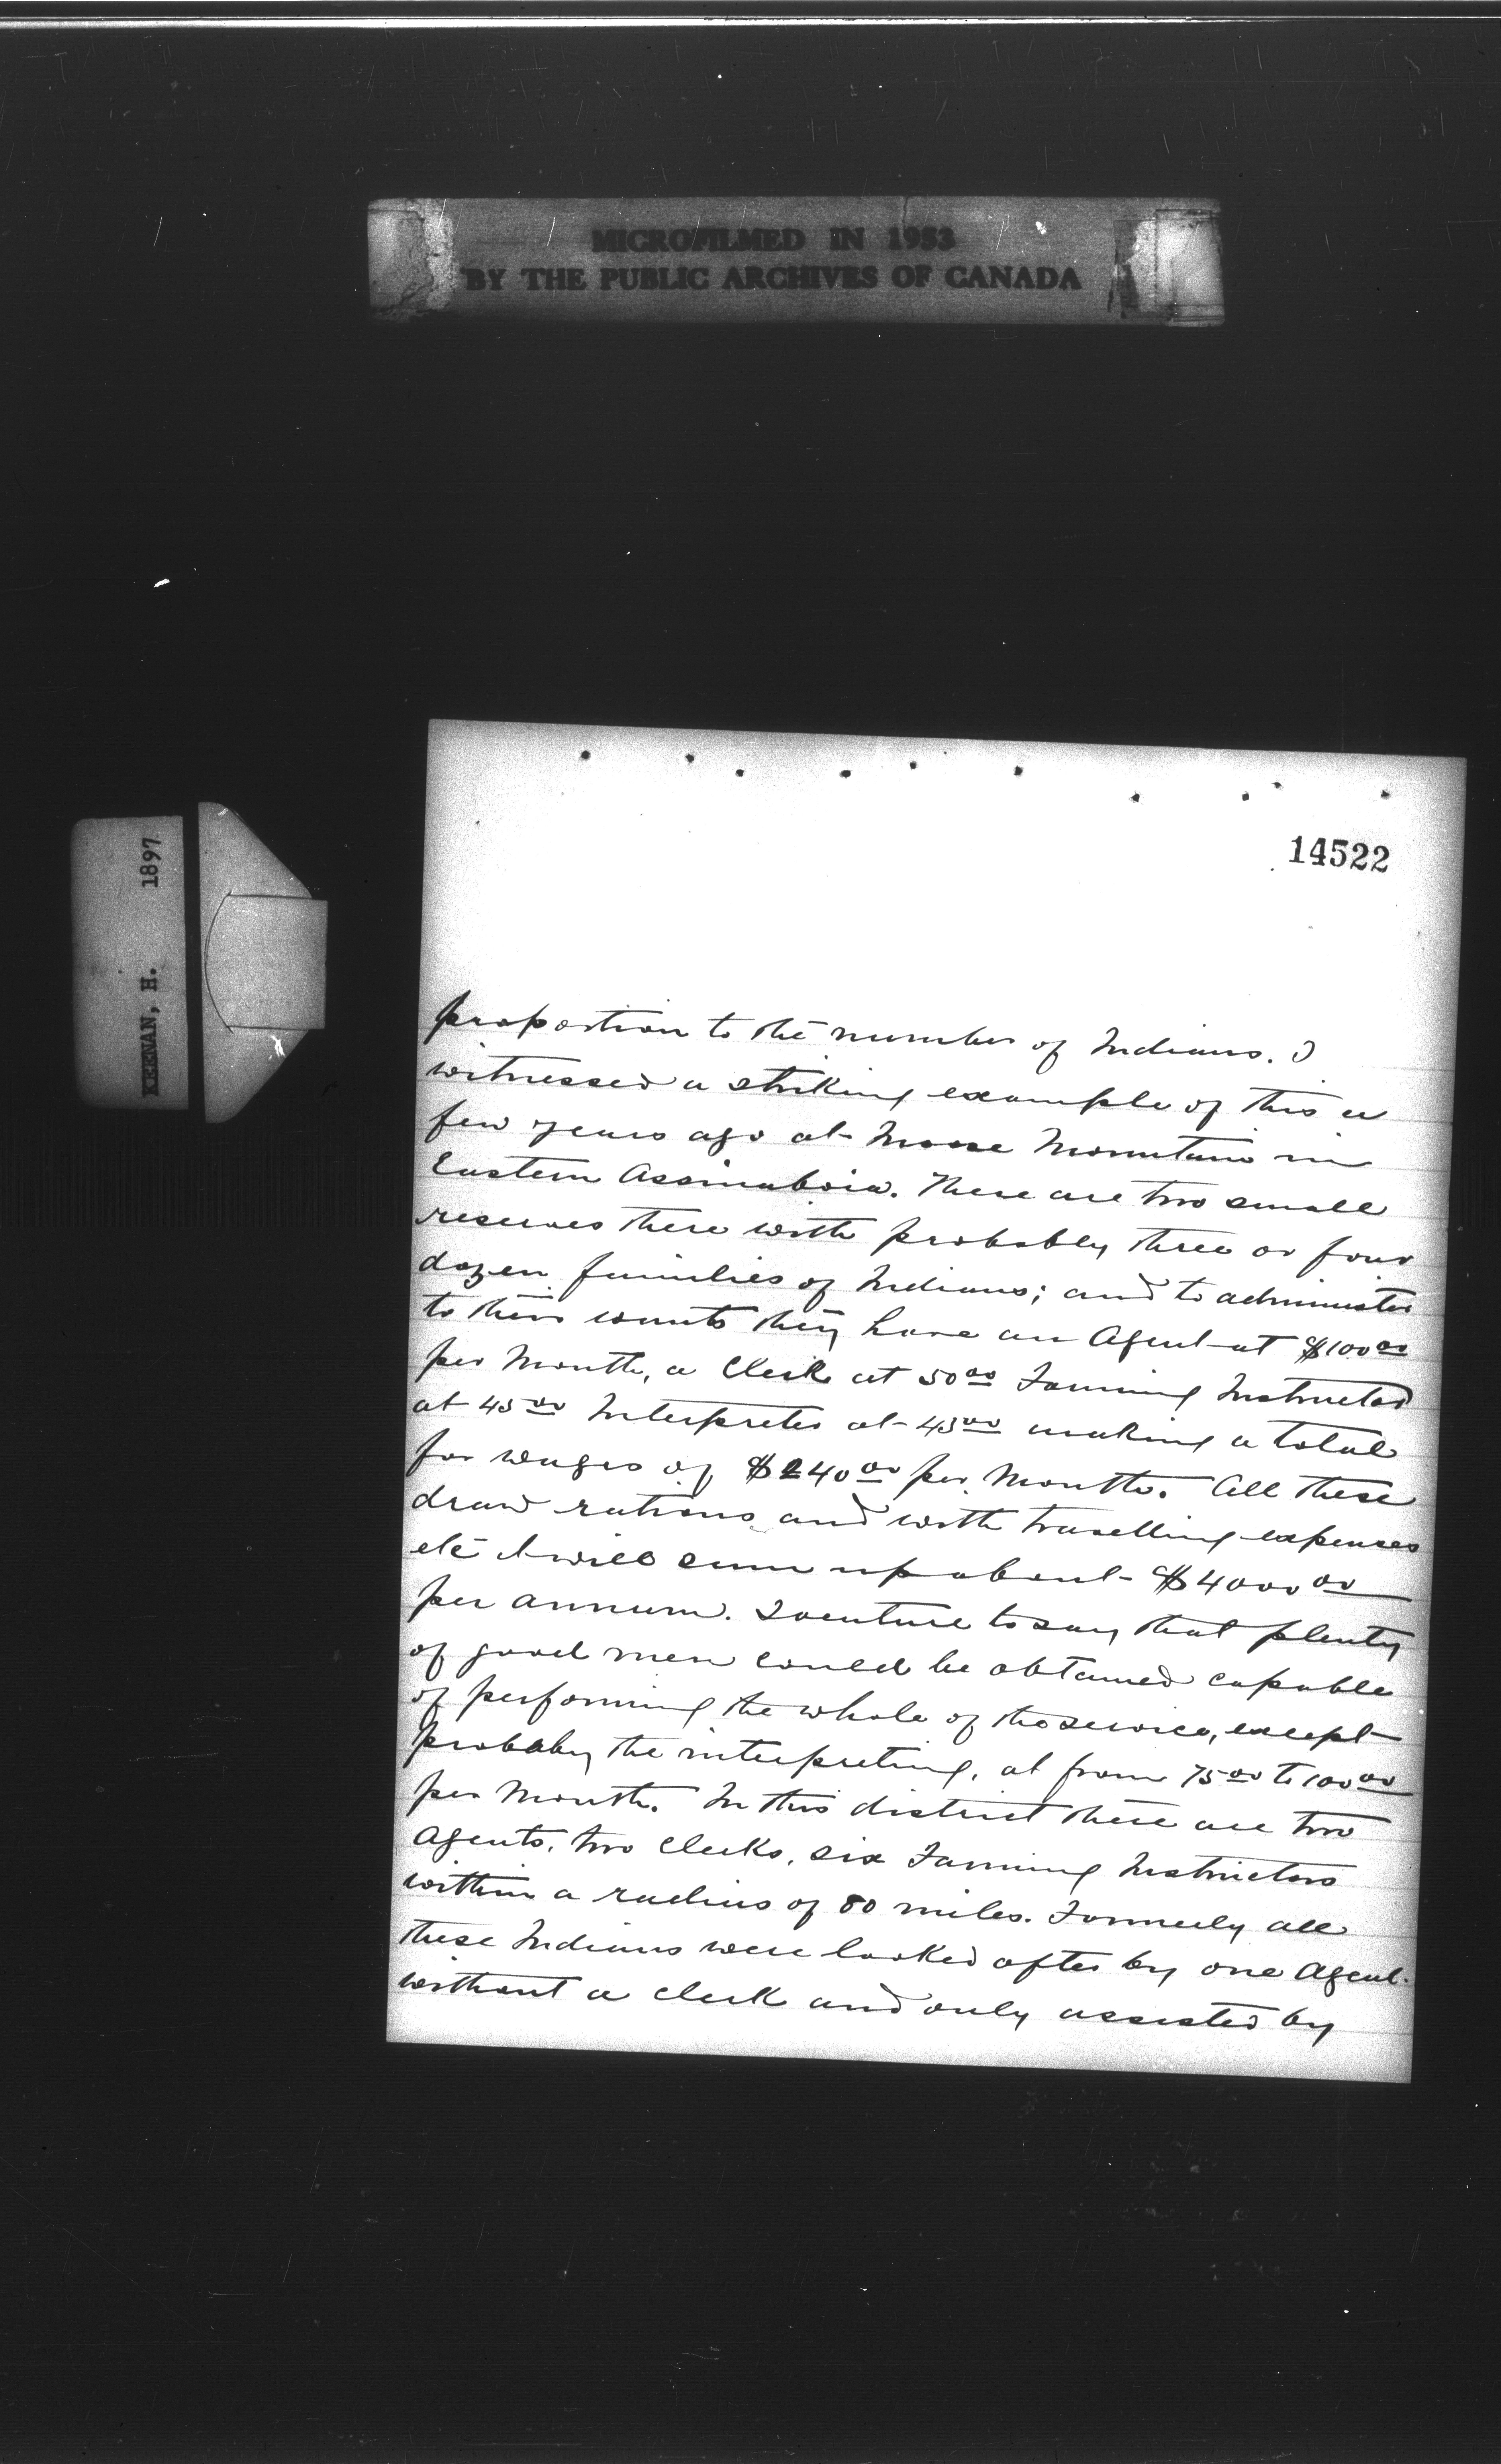 MICROFILMED IN 1953
BY THE PUBLIC ARCHIVES OF CANADA
KEENAN, H. 1897
14522
proportion to the number of Indians. I
witnessed a striking example of this a
few years ago at Moose Mountain in
Eastern Assiniboia. There are two small
reserves there with probably three or four
dozen families of Indians; and to administer
to their wants they have an Agent at $100.00
per Month, a Clerk at 50.00 Farming Instructor
at 45.00 Interpreter at 45.00 making a total
for wages of $240.00 per Month. All these
draw rations and with travelling expenses
etc it will sum up about $4000.00
per annum. I venture to say that plenty
of good men could be obtained capable
of performing the whole of the service, except
probably the interpreting, at from 75.00 to 100.00
per Month. In this district there are two
Agents, two Clerks, six Farming Instructors
within a radius of 80 miles. Formerly all
these Indians were looked after by one Agent
without a clerk and only assisted by